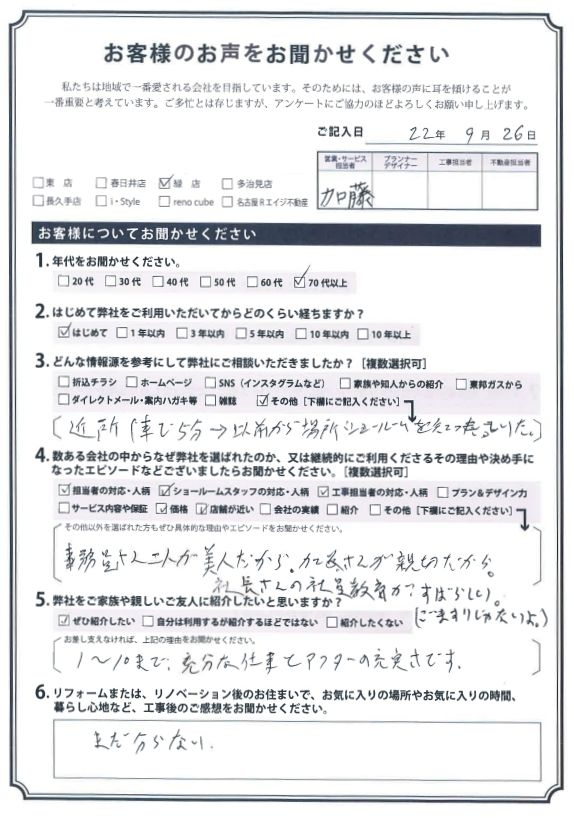 お客様のお声をお聞かせください
私たちは地域で一番愛される会社を目指しています。そのためには、お客様の声に耳を傾けることが
一番重要と考えています。ご多忙とは存じますが、アンケートにご協力のほどよろしくお願い申し上げます。
ご記入日 22年 9月 26日
営業・サービス担当者 プランナーデザイナー 工事担当者 不動産担当者
加藤
□東 店 □春日井店 ☑緑 店 □多治見店
□長久手店 □i・Style □reno cube □名古屋Rエイジ不動産
お客様についてお聞かせください
1. 年代をお聞かせください。
□20代 □30代 □40代 □50代 □60代 ☑70代以上
2. はじめて弊社をご利用いただいてからどのくらい経ちますか？
☑はじめて □1年以内 □3年以内 □5年以内 □10年以内 □10年以上
3. どんな情報源を参考にして弊社にご相談いただきましたか？［複数選択可］
□折込チラシ □ホームページ □SNS（インスタグラムなど） □家族や知人からの紹介 □東邦ガスから
□ダイレクトメール・案内ハガキ等 □雑誌 ☑その他［下欄にご記入ください］
近所 車で5分→以前から場所ショールーム
4. 数ある会社の中からなぜ弊社を選ばれたのか、又は継続的にご利用くださるその理由や決め手に
なったエピソードなどございましたらお聞かせください。［複数選択可］
☑担当者の対応・人柄 ☑ショールームスタッフの対応・人柄 ☑工事担当者の対応・人柄 □プラン＆デザイン力
□サービス内容や保証 ☑価格 ☑店舗が近い □会社の実績 □紹介 □その他［下欄にご記入ください］
その他以外を選ばれた方もぜひ具体的な理由やエピソードをお聞かせください。
事務員さん二人が美人だから。加藤さんが親切だから。
社長さんの社員教育が、すばらしい。
(ごますりじゃないよ。)
5. 弊社をご家族や親しいご友人に紹介したいと思いますか？
☑ぜひ紹介したい □自分は利用するが紹介するほどではない □紹介したくない
お差し支えなければ、上記の理由をお聞かせください。
1〜10まで、充分な仕事とアフターの充実さです.
6. リフォームまたは、リノベーション後のお住まいで、お気に入りの場所やお気に入りの時間、
暮らし心地など、工事後のご感想をお聞かせください。
まだ分らない.